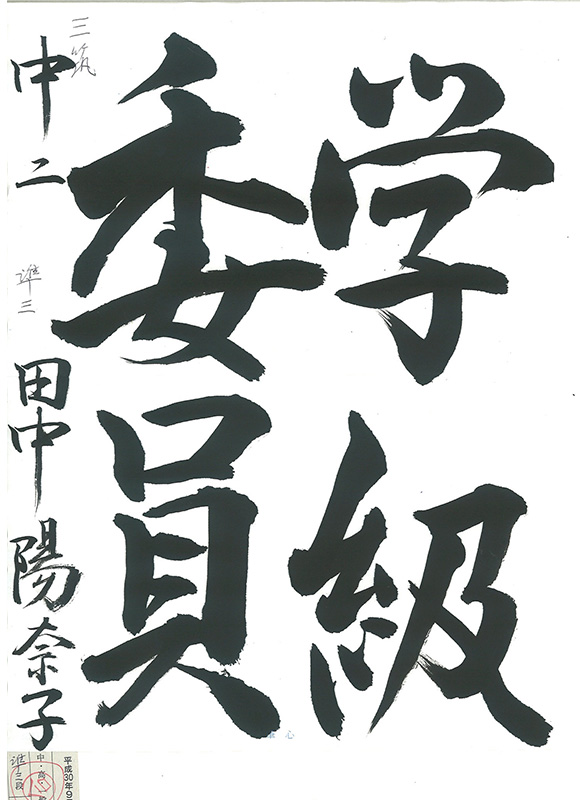 学級
委員
三筑
中二 準三 田中陽奈子
心
平成30年9
中・高・
準三段